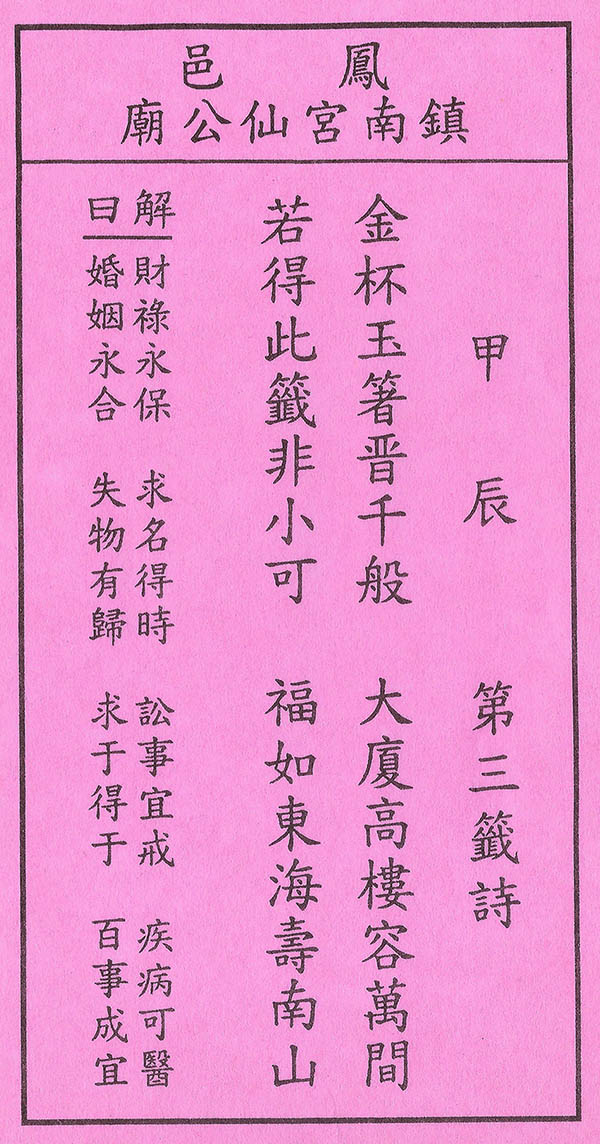 鳳邑
鎮南宮仙公廟
甲辰 第三籤詩
金杯玉箸晋千般 大廈高樓容萬間
若得此籤非小可 福如東海壽南山
解曰
財祿永保 求名得時 訟事宜戒 疾病可醫
婚姻永合 失物有歸 求于得于 百事成宜